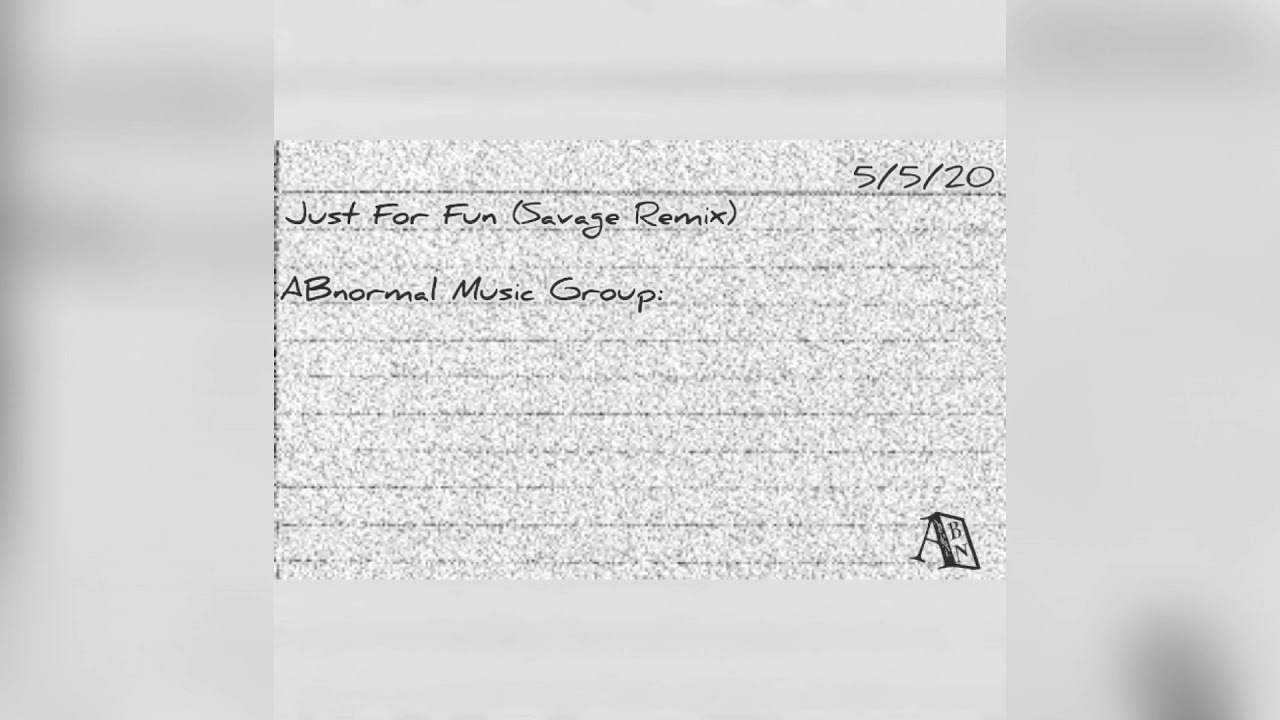 5/5/20
Just For Fun (Savage Remix)
ABnormal Music Group:
ABN